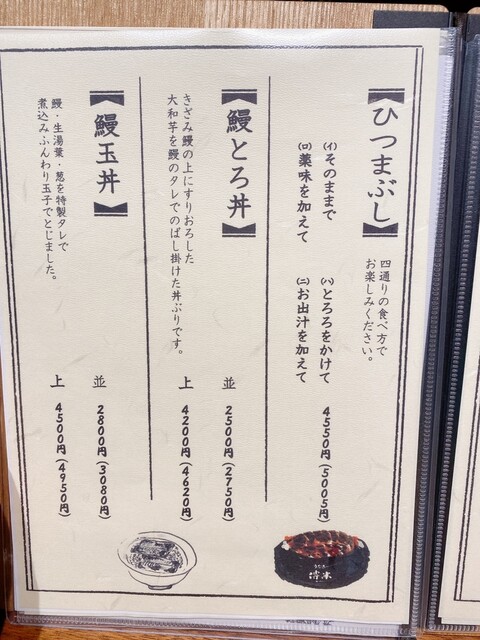 【ひつまぶし】
四通りの食べ方で
お楽しみください。
(イ)そのままで
(ロ)薬味を加えて
(ハ)とろろをかけて
(ニ)お出汁を加えて
4550円(5005円)
【鰻とろ丼】
きざみ鰻の上にすりおろした
大和芋を鰻のタレでのばし掛けた丼ぶりです。
並 2500円(2750円)
上 4200円(4620円)
【鰻玉丼】
鰻・生湯葉・葱を特製タレで
煮込みふんわり玉子でとじました。
並 2800円(3080円)
上 4500円(4950円)